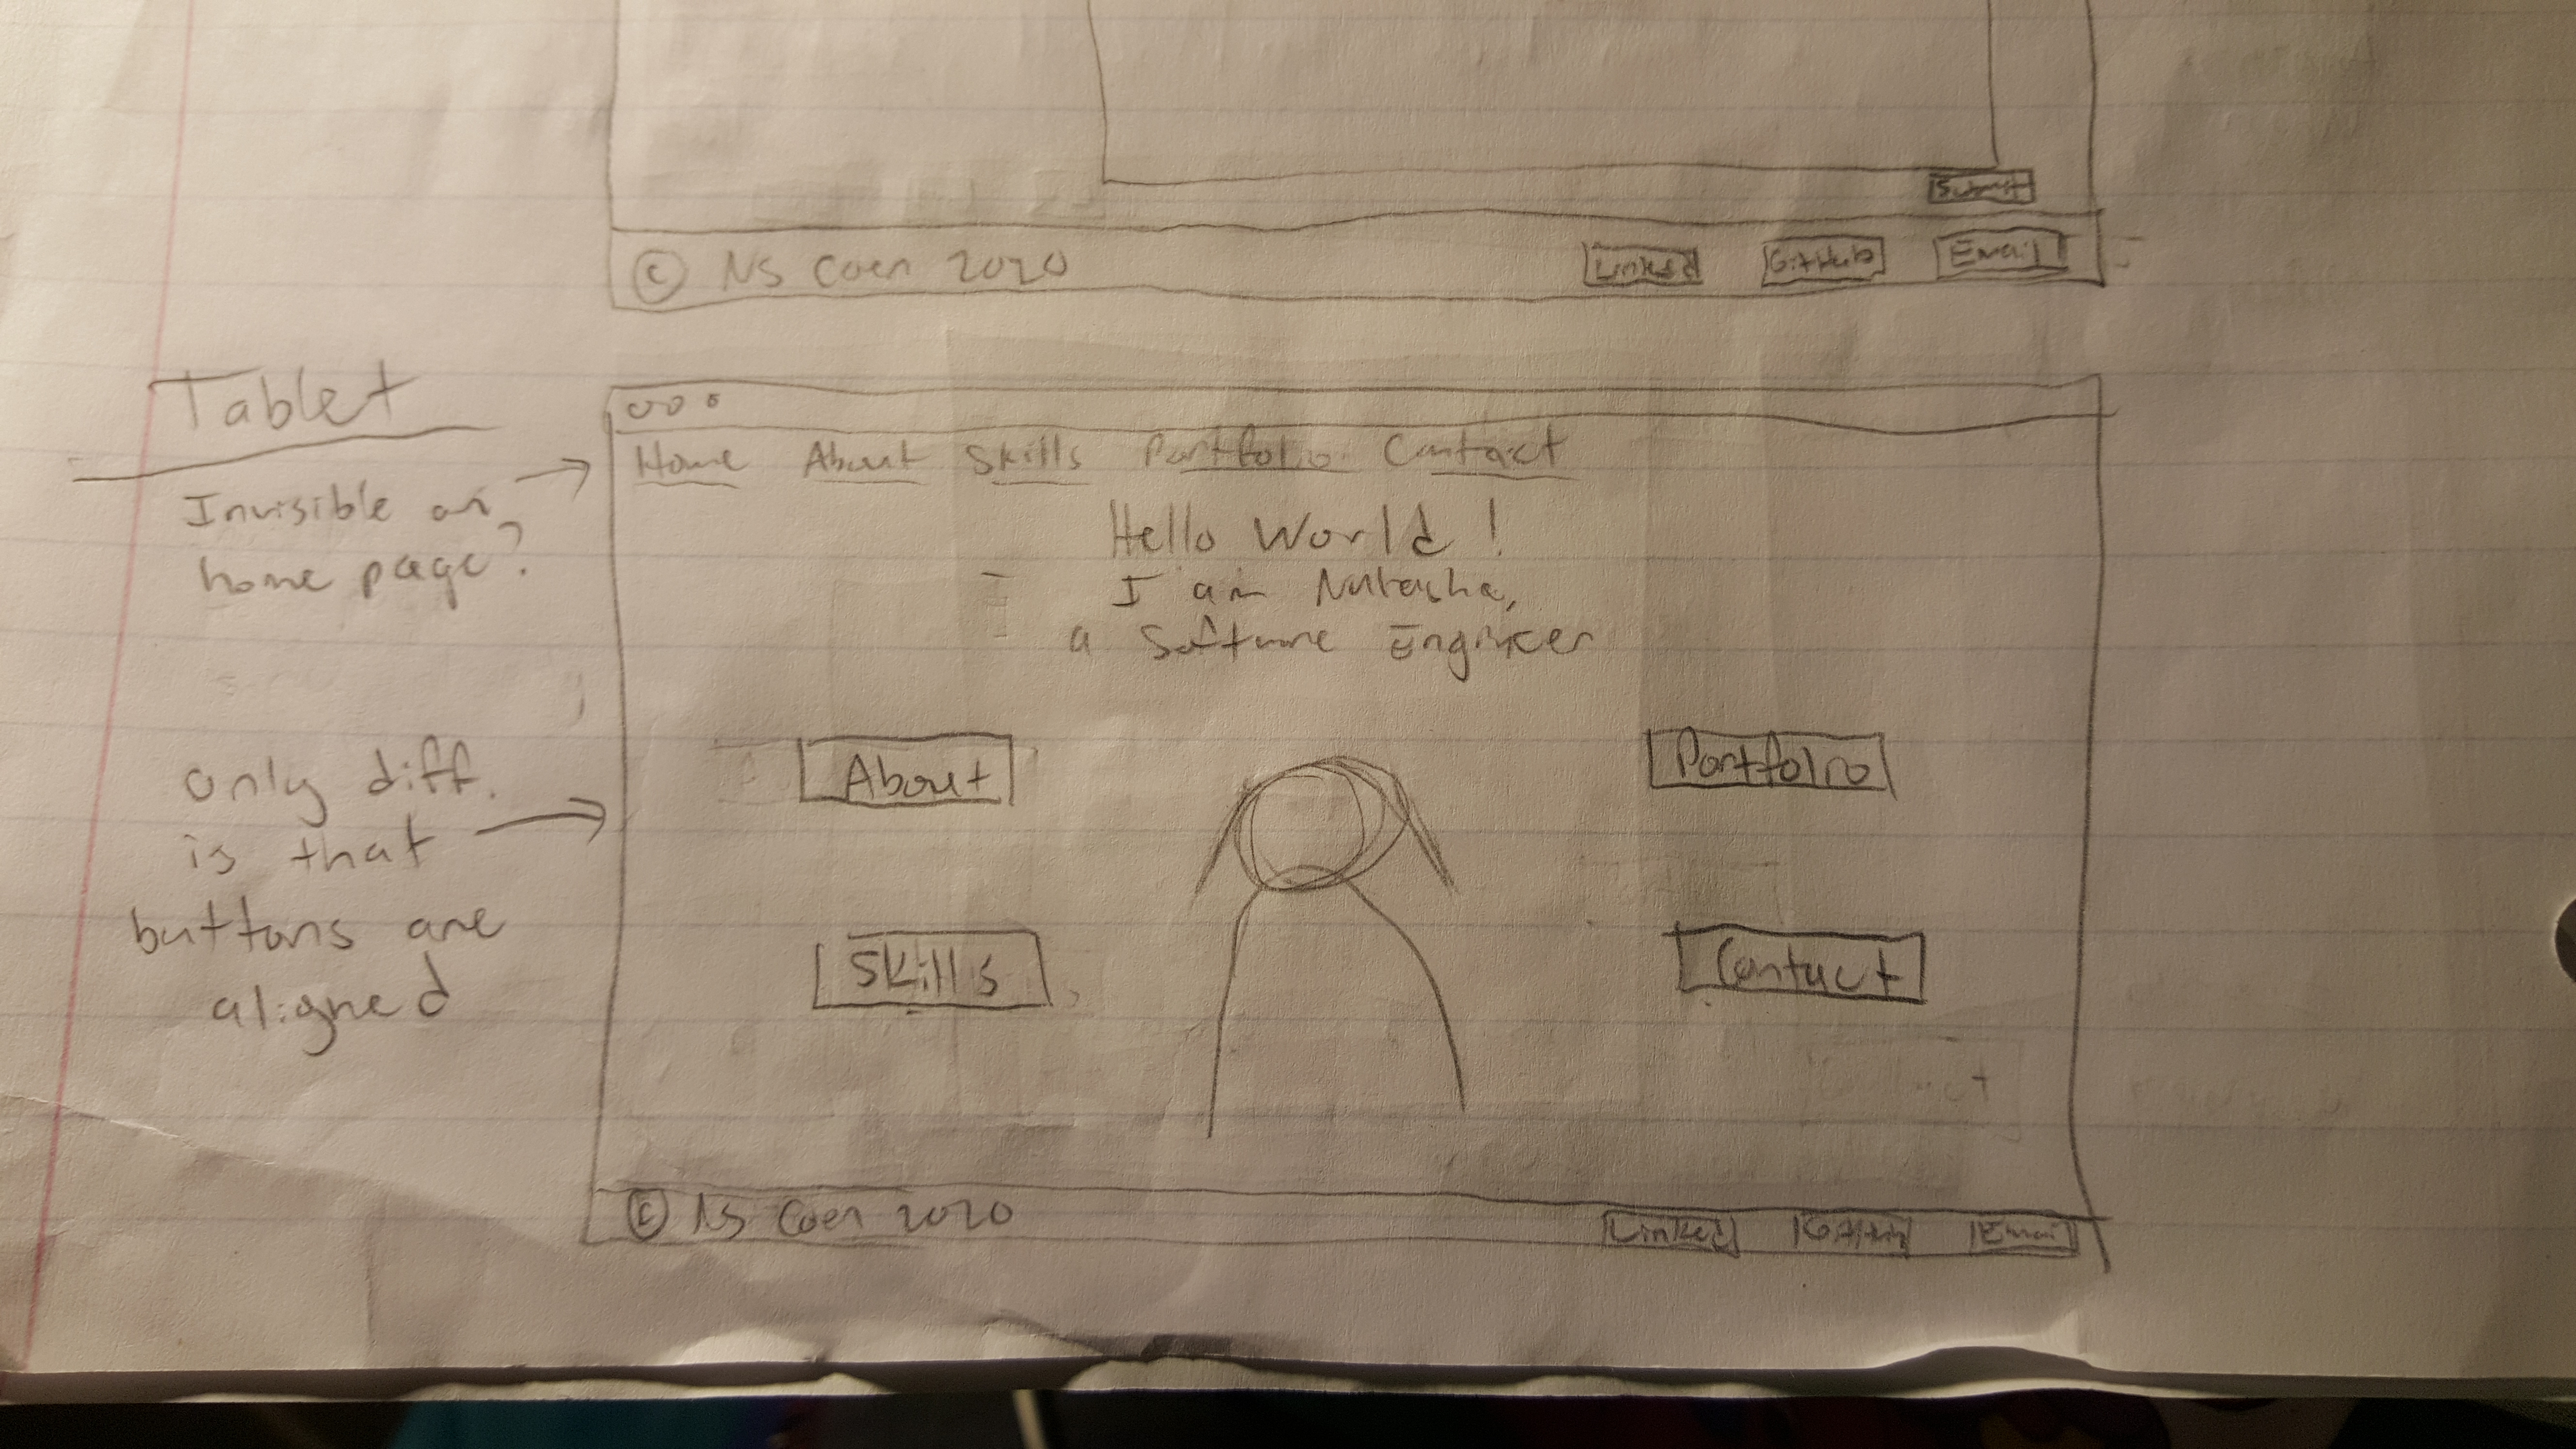 Submit
© NS Coen 2020 Linked GitHub Email
Tablet
Invisible on
home page?
Home About Skills Portfolio Contact
Hello World!
I am Natasha,
a Software Engineer
only diff.
is that
buttons are
aligned
About Portfolio
Skills Contact
© NS Coen 2020 Linked GitHub Email